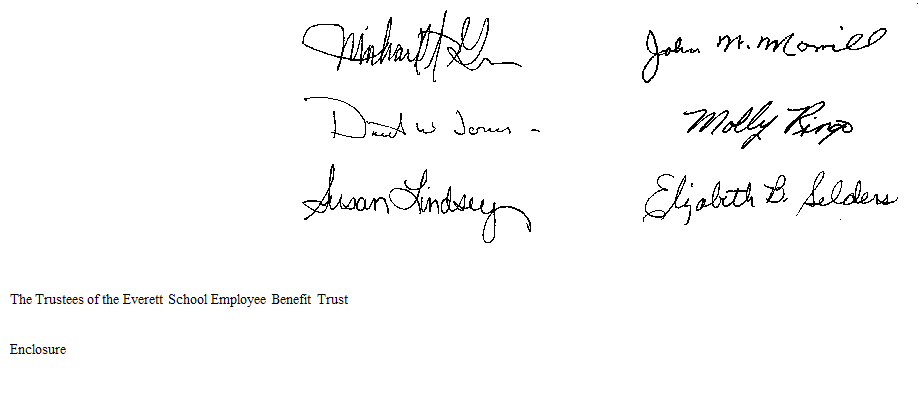 John M. Morrill
W Jones
Molly Ringo
Susan Lindsey
Elizabeth B. Selders
The Trustees of the Everett School Employee Benefit Trust
Enclosure